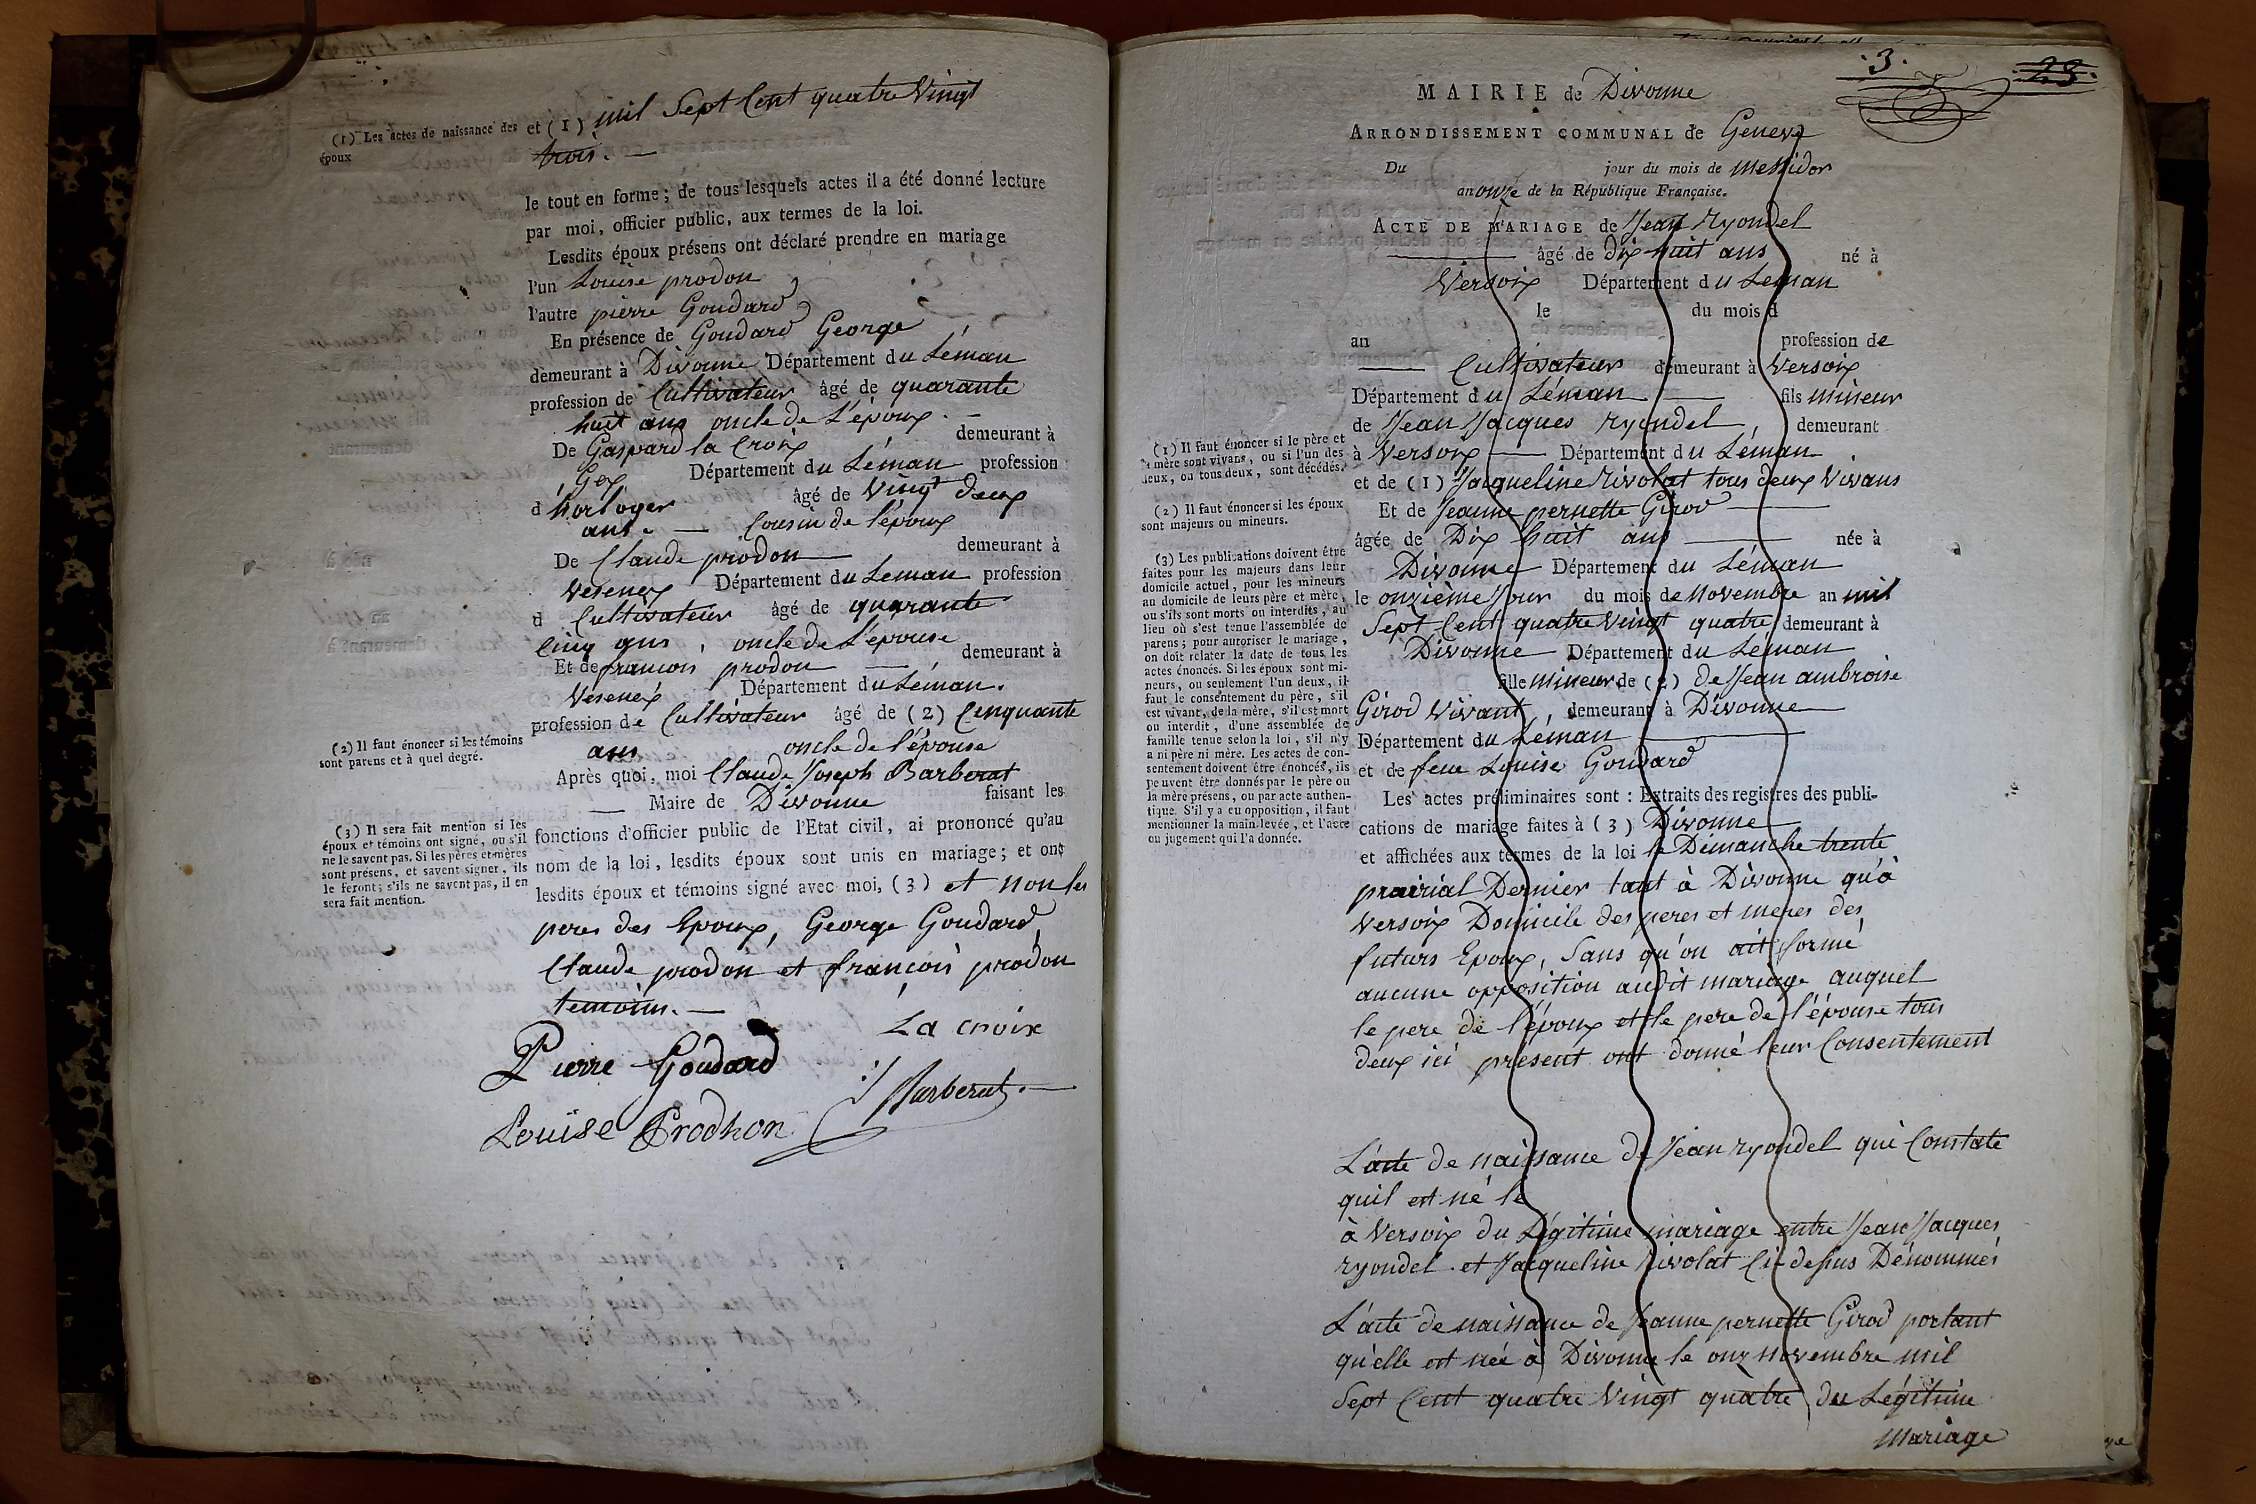 mil Sept Cent quatre Vingt
(1) Les actes de naissance des
époux
et (1)
trois. —
le tout en forme; de tous lesquels actes il a été donné lecture
par moi, officier public, aux termes de la loi.
Lesdits époux présens ont déclaré prendre en mariage
l'un Louise prodon
l'autre pierre Goudard
En présence de Goudard George
demeurant à Divonne Département du Léman
profession de Cultivateur âgé de quarante
huit ans oncle de l'époux. —
De Gaspard la Croix demeurant à
Gex Département du Léman profession
d'horloger âgé de Vingt deux
ans. — Cousin de l'époux
De Claude prodon — demeurant à
Vesenex Département du Leman profession
d Cultivateur âgé de quarante
cinq ans, oncle de l'épouse
Et de francois prodon — demeurant à
Vesenex Département du Léman.
profession de Cultivateur âgé de (2) Cinquante
ans oncle de l'épouse
(2) Il faut énoncer si les témoins
sont parens et à quel degré.
Après quoi, moi Claude Joseph Barberat
— Maire de Divonne faisant les
fonctions d'officier public de l'Etat civil, ai prononcé qu'au
nom de la loi, lesdits époux sont unis en mariage; et ont
lesdits époux et témoins signé avec moi, (3) et non les
(3) Il sera fait mention si les
époux et témoins ont signé, ou s'il
ne le savent pas. Si les pères et mères
sont présens, et savent signer, ils
le feront; s'ils ne savent pas, il en
sera fait mention.
peres des Epoux, George Goudard,
Claude prodon et françois prodon
temoins. —
La croix
Pierre Goudard
Barberat. —
Louïse Prodhon
.3. 23.
MAIRIE de Divonne
ARRONDISSEMENT COMMUNAL de Geneve
Du jour du mois de Messidor
an onze de la République Française.
ACTE DE MARIAGE de Jean ryondel
— âgé de dix huit ans né à
Versoix Département du Leman
le du mois d
an profession de
— Cultivateur demeurant à Versoix
Département du Léman — fils mineur
de Jean Jacques ryondel, demeurant
à Versoix — Département du Léman
et de (1) Jacqueline rivolat tous deux Vivans
(1) Il faut énoncer si le père et
la mère sont vivans, ou si l'un des
deux, ou tous deux, sont décédés.
Et de Jeanne pernette Girod —
âgée de Dix huit ans — née à
(2) Il faut énoncer si les époux
sont majeurs ou mineurs.
Divonne Département du Léman
le onzième Jour du mois de Novembre an mil
Sept Cent quatre Vingt quatre demeurant à
Divonne Département du Léman
fille mineur de (2) de Jean ambroise
Girod Vivant, demeurant à Divonne —
Département du Léman —
et de feue Louise Goudard
(3) Les publications doivent être
faites pour les majeurs dans leur
domicile actuel, pour les mineurs
au domicile de leurs père et mère,
ou s'ils sont morts ou interdits, au
lieu où s'est tenue l'assemblée de
parens; pour autoriser le mariage,
on doit relater la date de tous les
actes énoncés. Si les époux sont mi-
neurs, ou seulement l'un deux, il
faut le consentement du père, s'il
est vivant, de la mère, s'il est mort
ou interdit, d'une assemblée de
famille tenue selon la loi, s'il n'y
a ni père ni mère. Les actes de con-
sentement doivent être énoncés, ils
peuvent être donnés par le père ou
la mère présens, ou par acte authen-
tique. S'il y a eu opposition, il faut
mentionner la main-levée, et l'acte
ou jugement qui l'a donnée.
Les actes préliminaires sont : Extraits des registres des publi-
cations de mariage faites à (3) Divonne —
et affichées aux termes de la loi le Dimanche trente
prairial Dernier tant à Divonne qu'à
Versoix Domicile des peres et meres des
futurs Epoux, Sans qu'on ait formé
aucune opposition audit mariage auquel
le pere de l'époux et le pere de l'épouse tous
deux ici présent ont donné leur Consentement
L'acte de naissance de Jean ryondel qui Constate
quil est né le
à Versoix du Légitime mariage entre Jean Jacques
ryondel et Jacqueline rivolat Ci-dessus Dénommés
L'acte de naissance de Jeanne pernette Girod portant
qu'elle est née à Divonne le onz novembre mil
Sept Cent quatre Vingt quatre du Légitime
Mariage